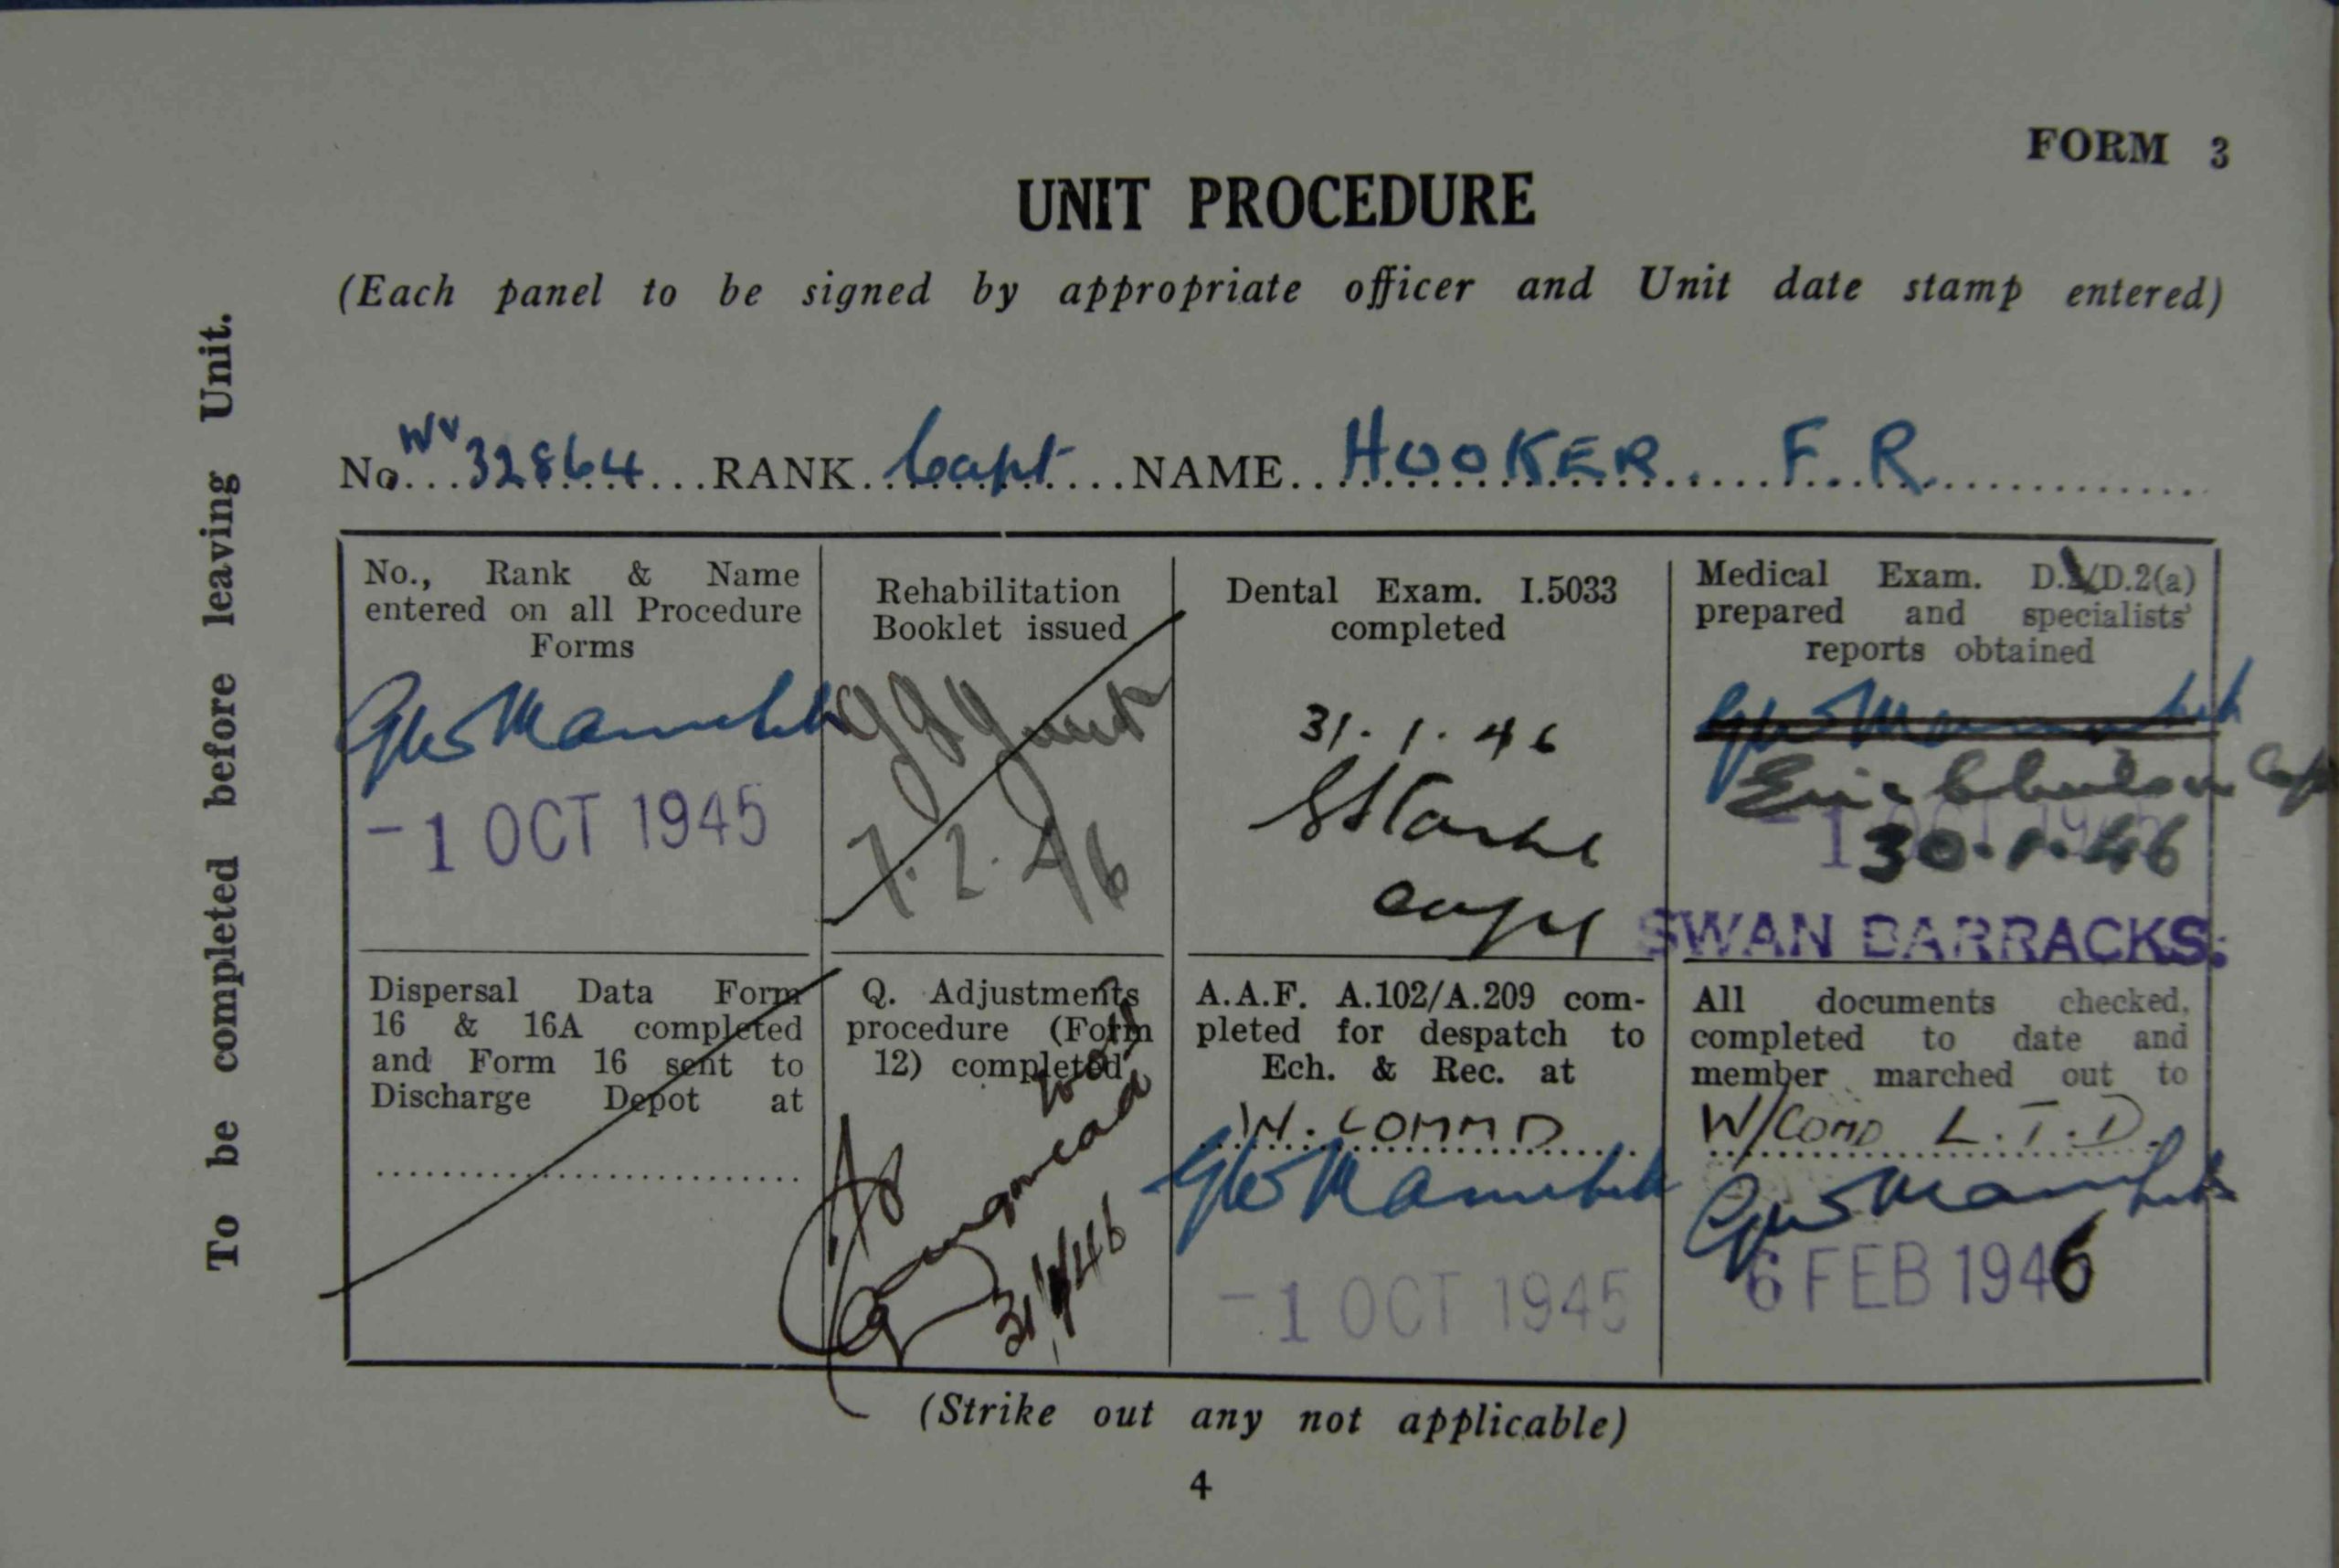 FORM 3
UNIT PROCEDURE
(Each panel to be signed by appropriate officer and Unit date stamp entered)
To be completed before leaving Unit.
No. WV 32864 RANK Capt NAME HOOKER F. R.
No., Rank & Name
entered on all Procedure
Forms
-1 OCT 1945
Rehabilitation
Booklet issued
7.2.46
Dental Exam. I.5033
completed
31.1.46
Capt
Medical Exam. D.2(a)
prepared and specialists'
reports obtained
Capt
-1 OCT 1945
30.1.46
SWAN BARRACKS.
Dispersal Data Form
16 & 16A completed
and Form 16 sent to
Discharge Depot at
Q. Adjustments
procedure (Form
12) completed
31/1/46
A.A.F. A.102/A.209 com-
pleted for despatch to
Ech. & Rec. at
W. COMMD
-1 OCT 1945
All documents checked,
completed to date and
member marched out to
W/COMD L.T.D.
6 FEB 1946
(Strike out any not applicable)
4